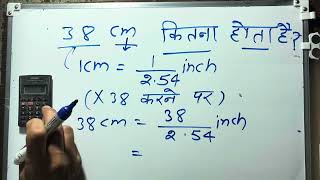 38 cm कितना होता है?
1cm = 1/2.54 inch
(X 38 करने पर)
38 cm = 38/2.54 inch
=